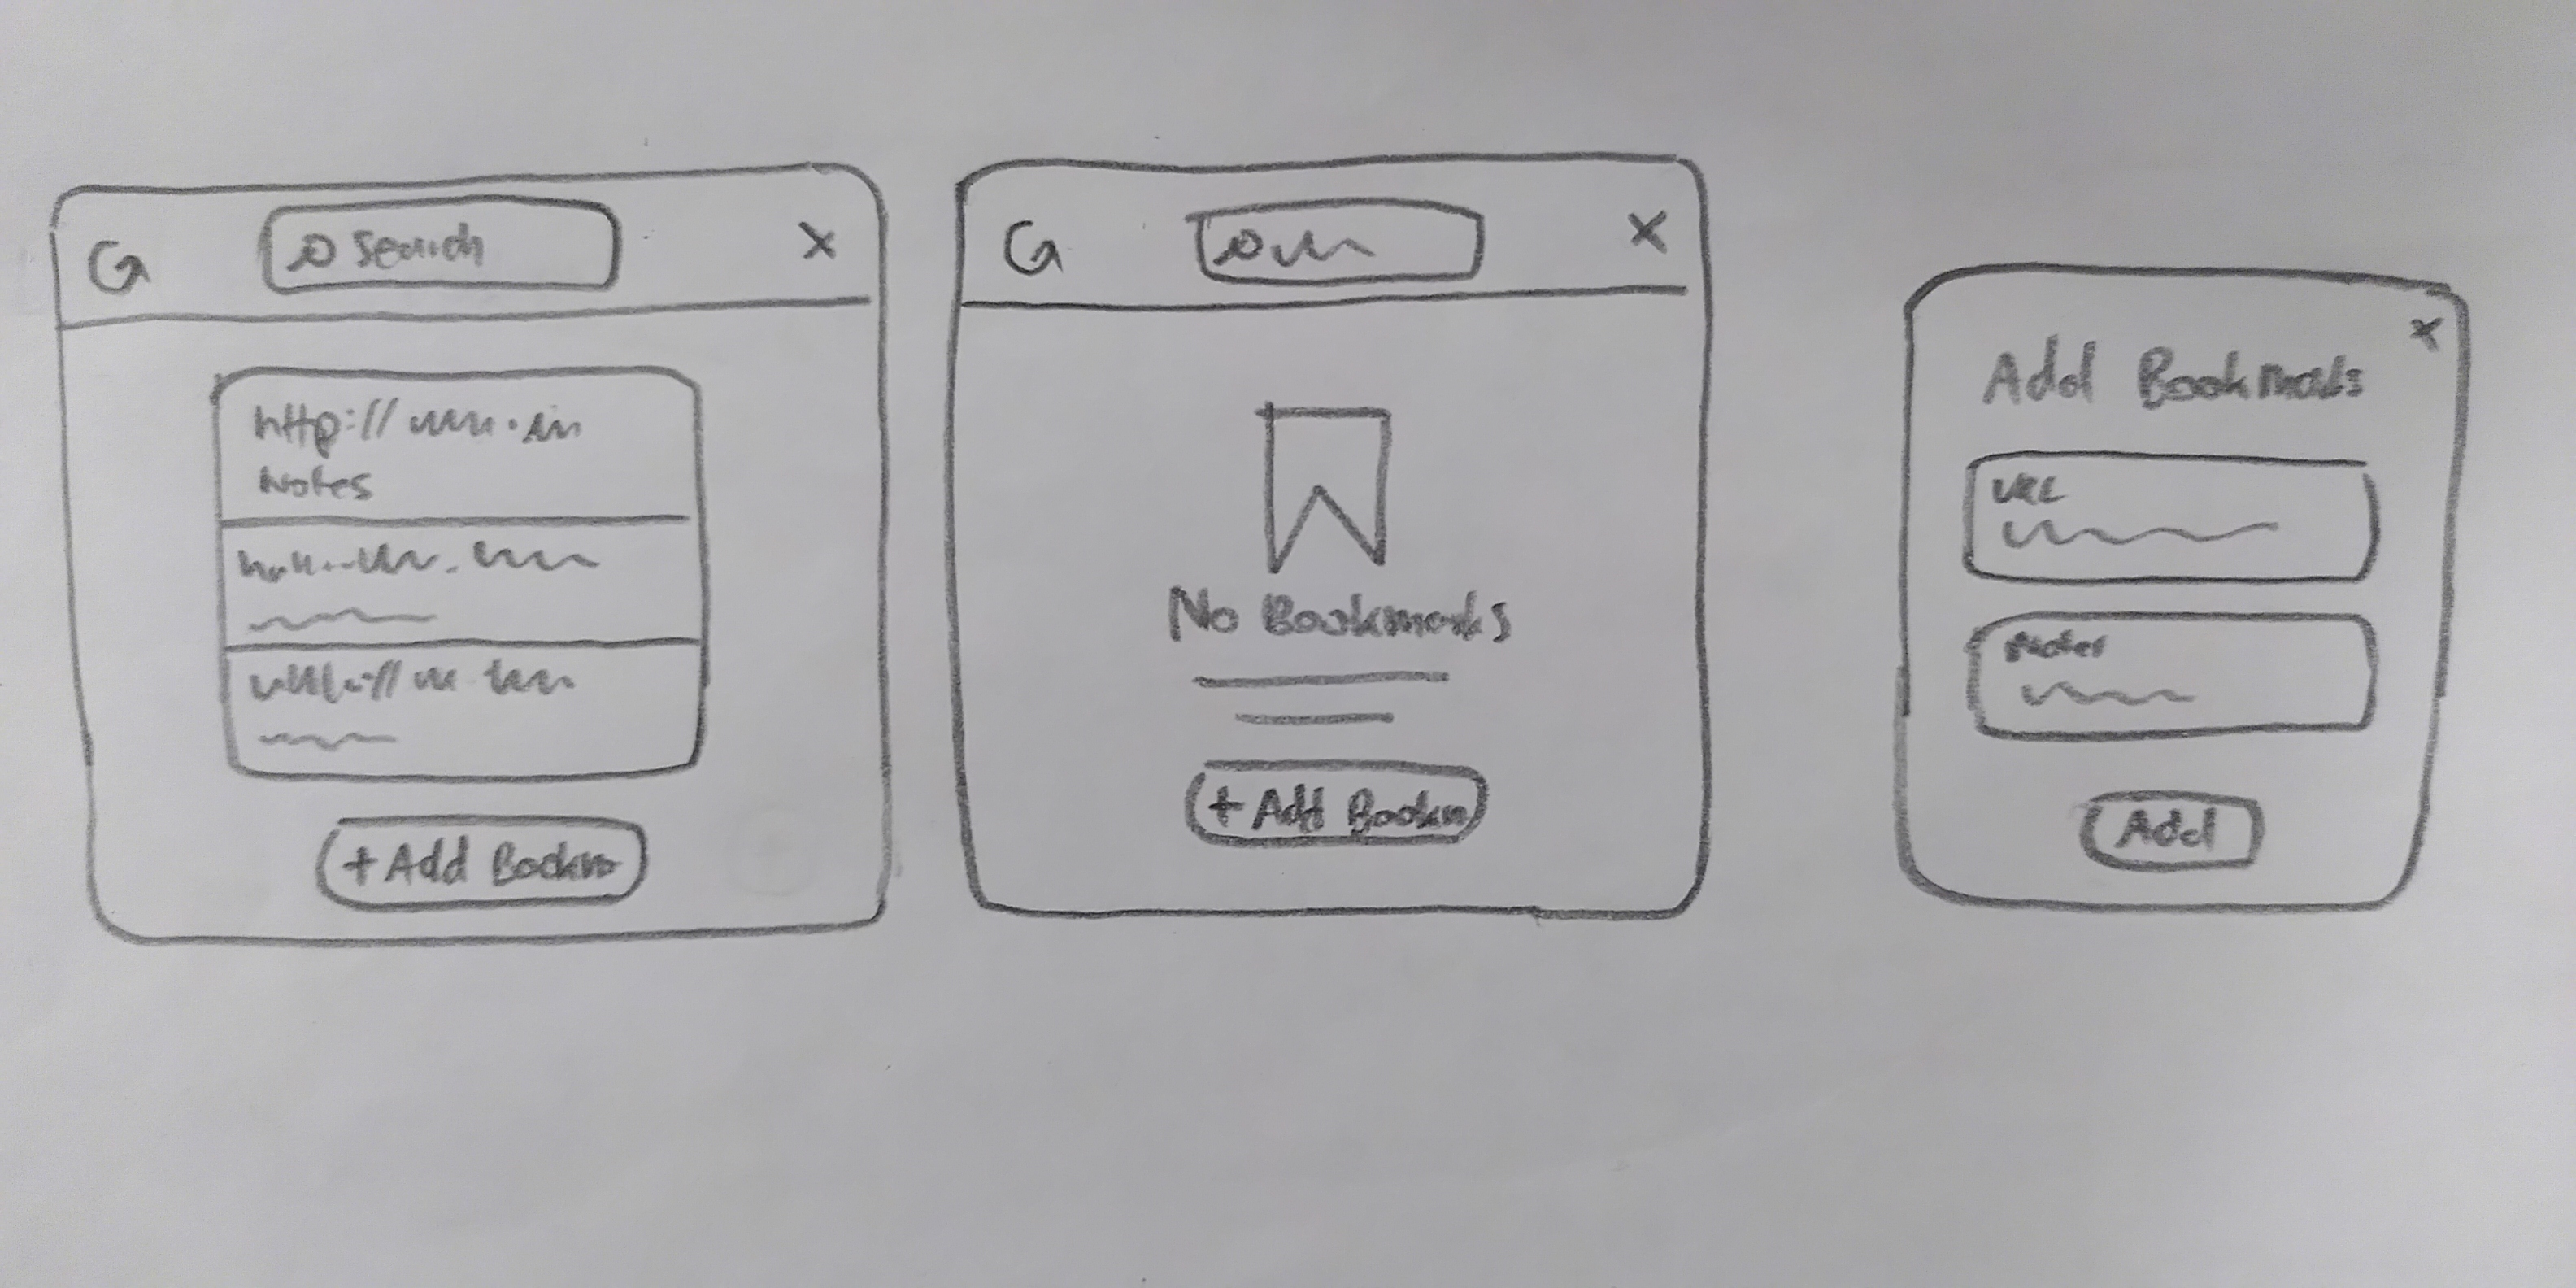 G
Search
X
http://
Notes
+ Add Bookm
G
X
No Bookmarks
+ Add Bookm
X
Add Bookmarks
URL
Notes
Add